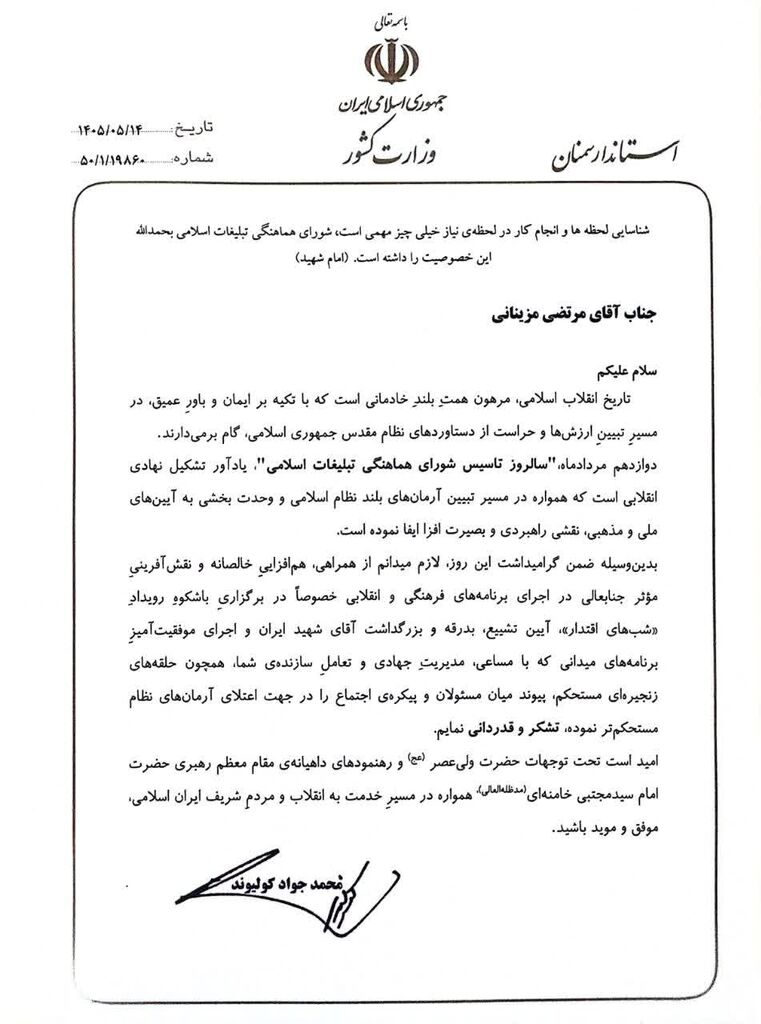 باسمه تعالی
جمهوری اسلامی ایران
وزارت کشور
استاندار سمنان
تاریخ: ۱۴۰۵/۰۵/۱۴
شماره: ۵۰/۱/۱۹۸۶۰
شناسایی لحظه ها و انجام کار در لحظه‌ی نیاز خیلی چیز مهمی است، شورای هماهنگی تبلیغات اسلامی بحمدالله
این خصوصیت را داشته است. (امام شهید)
جناب آقای مرتضی مزینانی
سلام علیکم
تاریخ انقلاب اسلامی، مرهون همتِ بلندِ خادمانی است که با تکیه بر ایمان و باورِ عمیق، در
مسیرِ تبیینِ ارزش‌ها و حراست از دستاوردهای نظام مقدس جمهوری اسلامی، گام برمی‌دارند.
دوازدهم مردادماه،"سالروز تاسیس شورای هماهنگی تبلیغات اسلامی"، یادآور تشکیل نهادی
انقلابی است که همواره در مسیر تبیین آرمان‌های بلند نظام اسلامی و وحدت بخشی به آیین‌های
ملی و مذهبی، نقشی راهبردی و بصیرت افزا ایفا نموده است.
بدین‌وسیله ضمن گرامیداشت این روز، لازم میدانم از همراهی، هم‌افزاییِ خالصانه و نقش‌آفرینیِ
مؤثر جنابعالی در اجرای برنامه‌های فرهنگی و انقلابی خصوصاً در برگزاریِ باشکوهِ رویدادِ
«شب‌های اقتدار»، آیین تشییع، بدرقه و بزرگداشت آقای شهید ایران و اجرای موفقیت‌آمیزِ
برنامه‌های میدانی که با مساعی، مدیریتِ جهادی و تعاملِ سازنده‌ی شما، همچون حلقه‌های
زنجیره‌ای مستحکم، پیوند میان مسئولان و پیکره‌ی اجتماع را در جهت اعتلای آرمان‌های نظام
مستحکم‌تر نموده، تشکر و قدردانی نمایم.
امید است تحت توجهات حضرت ولی‌عصر (عج) و رهنمودهای داهیانه‌ی مقام معظم رهبری حضرت
امام سیدمجتبی خامنه‌ای(مدظله‌العالی)، همواره در مسیرِ خدمت به انقلاب و مردمِ شریف ایران اسلامی،
موفق و موید باشید.
محمد جواد کولیوند